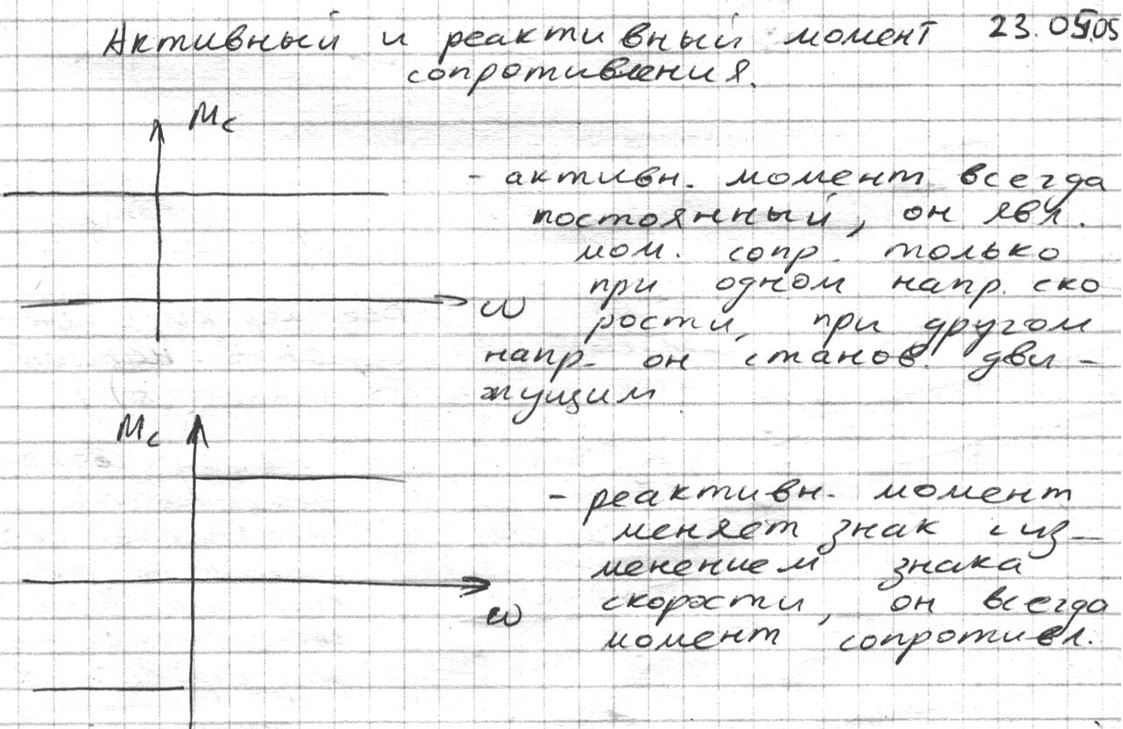 Активный и реактивный момент 23.05.05
сопротивления.
Mc
- активн. момент всегда
постоянный, он явл.
мом. сопр. только
при одном напр. ско
ω
рости, при другом
напр. он станов. дви-
жущим
Mc
- реактивн. момент
меняет знак с из-
менением знака
скорости, он всегда
ω
момент сопротивл.